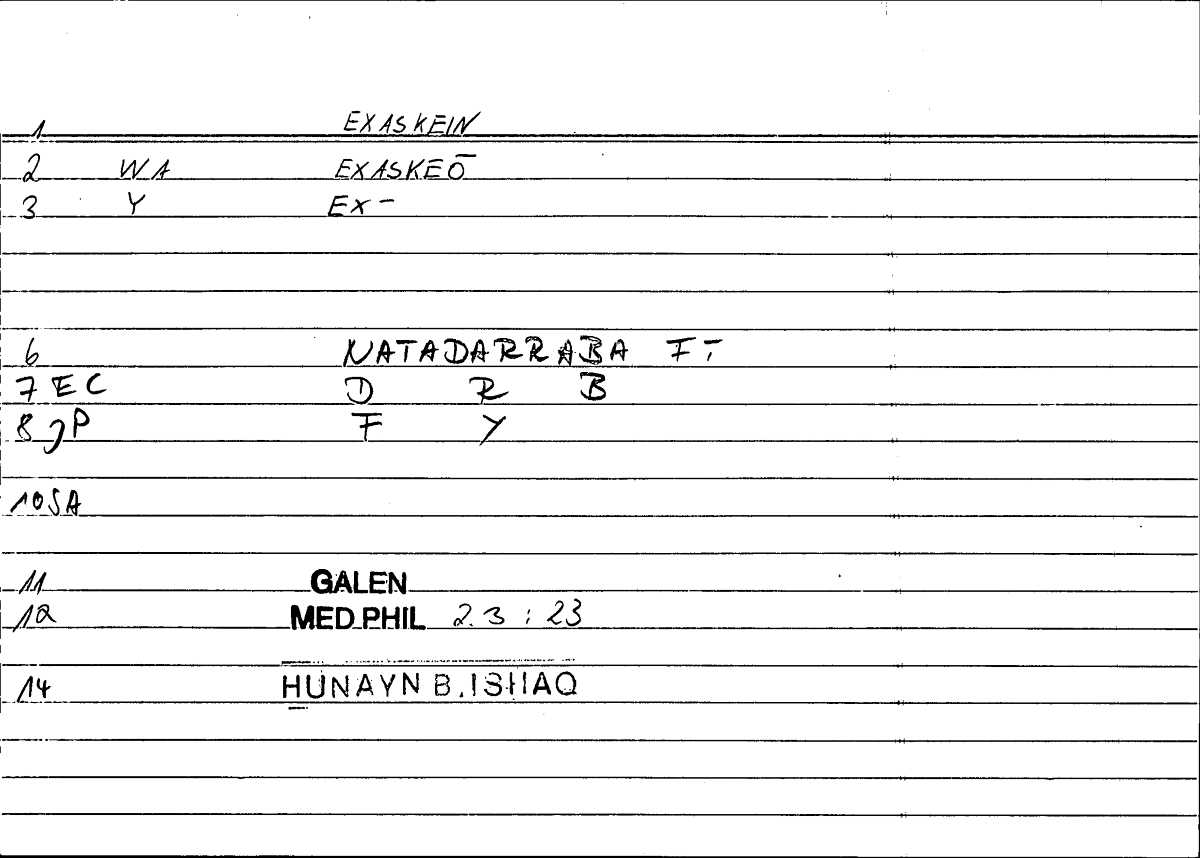 1 EXASKEIN
2 WA EXASKEŌ
3 Y EX-
6 NATADARRABA FĪ
7 EC D R B
8 JP F Y
10 SA
11 GALEN
12 MED PHIL 2.3 : 23
14 HUNAYN B. ISHAQ